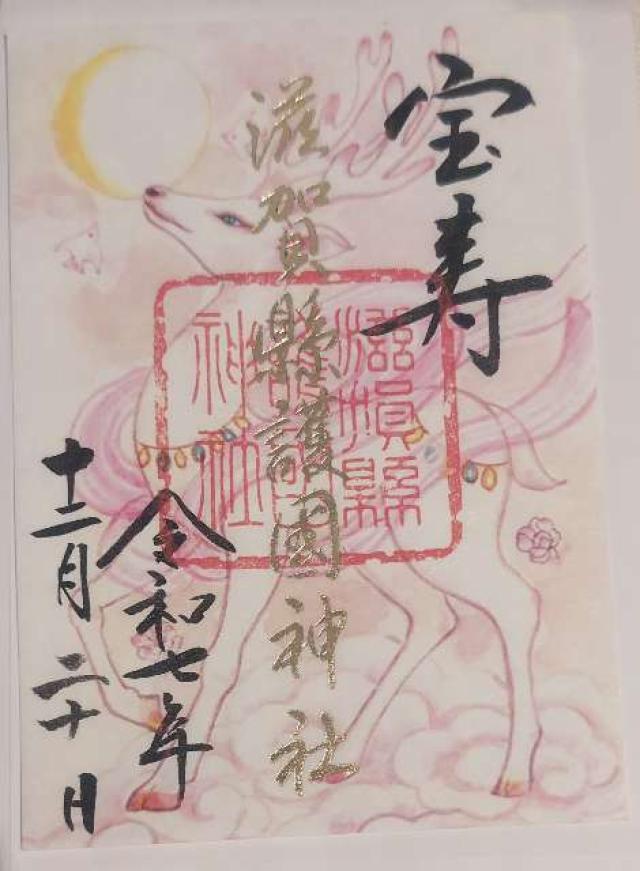 宝寿
滋賀縣護国神社
令和七年
十二月二十日
滋賀縣
護国
神社